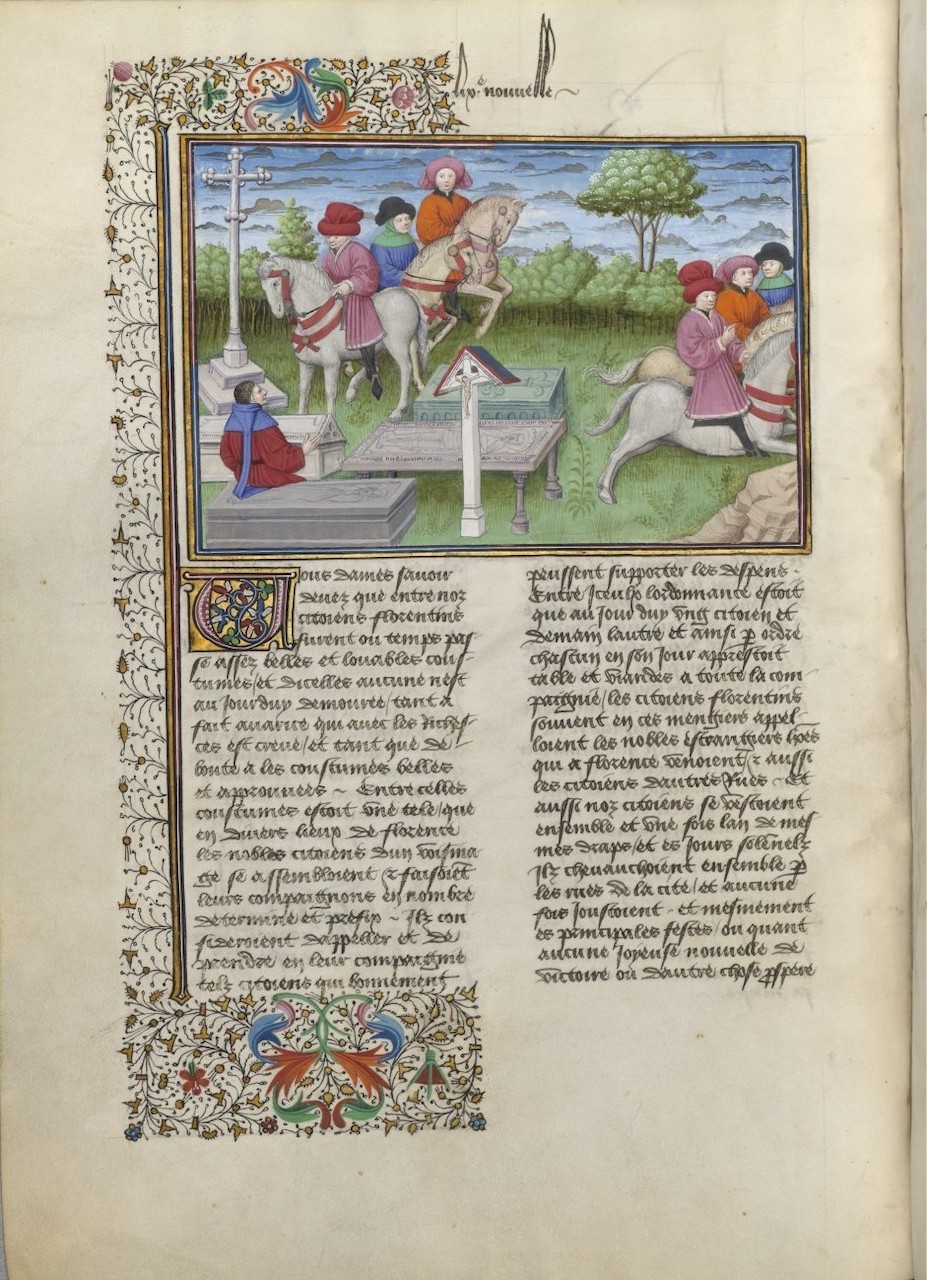 lix.e nouvelle
Vous dames savoir
devez que entre noz
citoiens florentins
furent ou temps pas
se assez belles et louables cous
tumes / et dicelles aucune nest
au jour duy demouree / tant a
fait avarice qui avec les riches
ces est creue / et tant que de
boute a les coustumes belles
et approuvees ~ Entre celles
coustumes estoit une tele / que
en divers lieux de florence
les nobles citoiens dun voisina
ge se assembloient & faisoiēt
leurs compaignons en nombre
determine et prefix ~ Ilz con
sideroient dappeller et de
prendre en leur compaignie
telz citoiens qui bonnement
peussent supporter les despens -
Entre iceulx lordonnance estoit
que au jour duy ung citoien et
demain lautre et ainsi p ordre
chascun en son jour apprestoit
table et viandes a toute la com
paignie / les citoiens florentins
souvent en ces mengiers appel
loient les nobles estrangiers hōēs
qui a florence venoient / & aussi
les citoiens dautres rues - Et
aussi noz citoiens se vestoient
ensemble et une fois lan de mes
mes draps / et es jours solēnelz
Ilz chevauchoient ensemble p
les rues de la cite / et aucune
fois joustoient - et mesmement
es principales festes / ou quant
aucune joyeuse nouvelle de
victoire ou dautre chose pspere